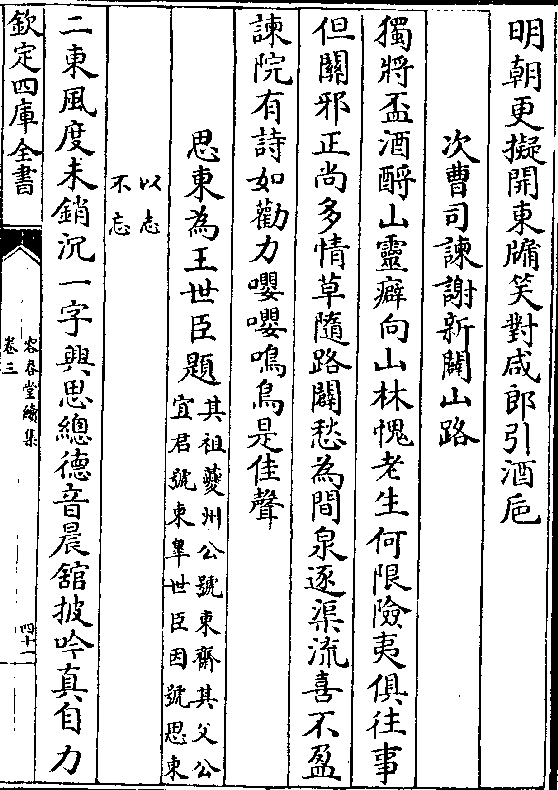 明朝更擬開東牖笑對咸郎引酒巵
次曹司諫謝新闢山路
獨將盃酒酹山靈癖向山林愧老生何限險夷俱往事
但關邪正尚多情草隨路闢愁為間泉逐渠流喜不盈
諫院有詩如勸力嚶嚶鳴鳥是佳聲
思東為王世臣題其祖夔州公號東齋其父公
宜君號東臯世臣因號思東
以志
不忘
二東風度未銷沉一字興思總德音晨舘披吟真自力
欽定四庫全書
容春堂續集
卷三
四十一